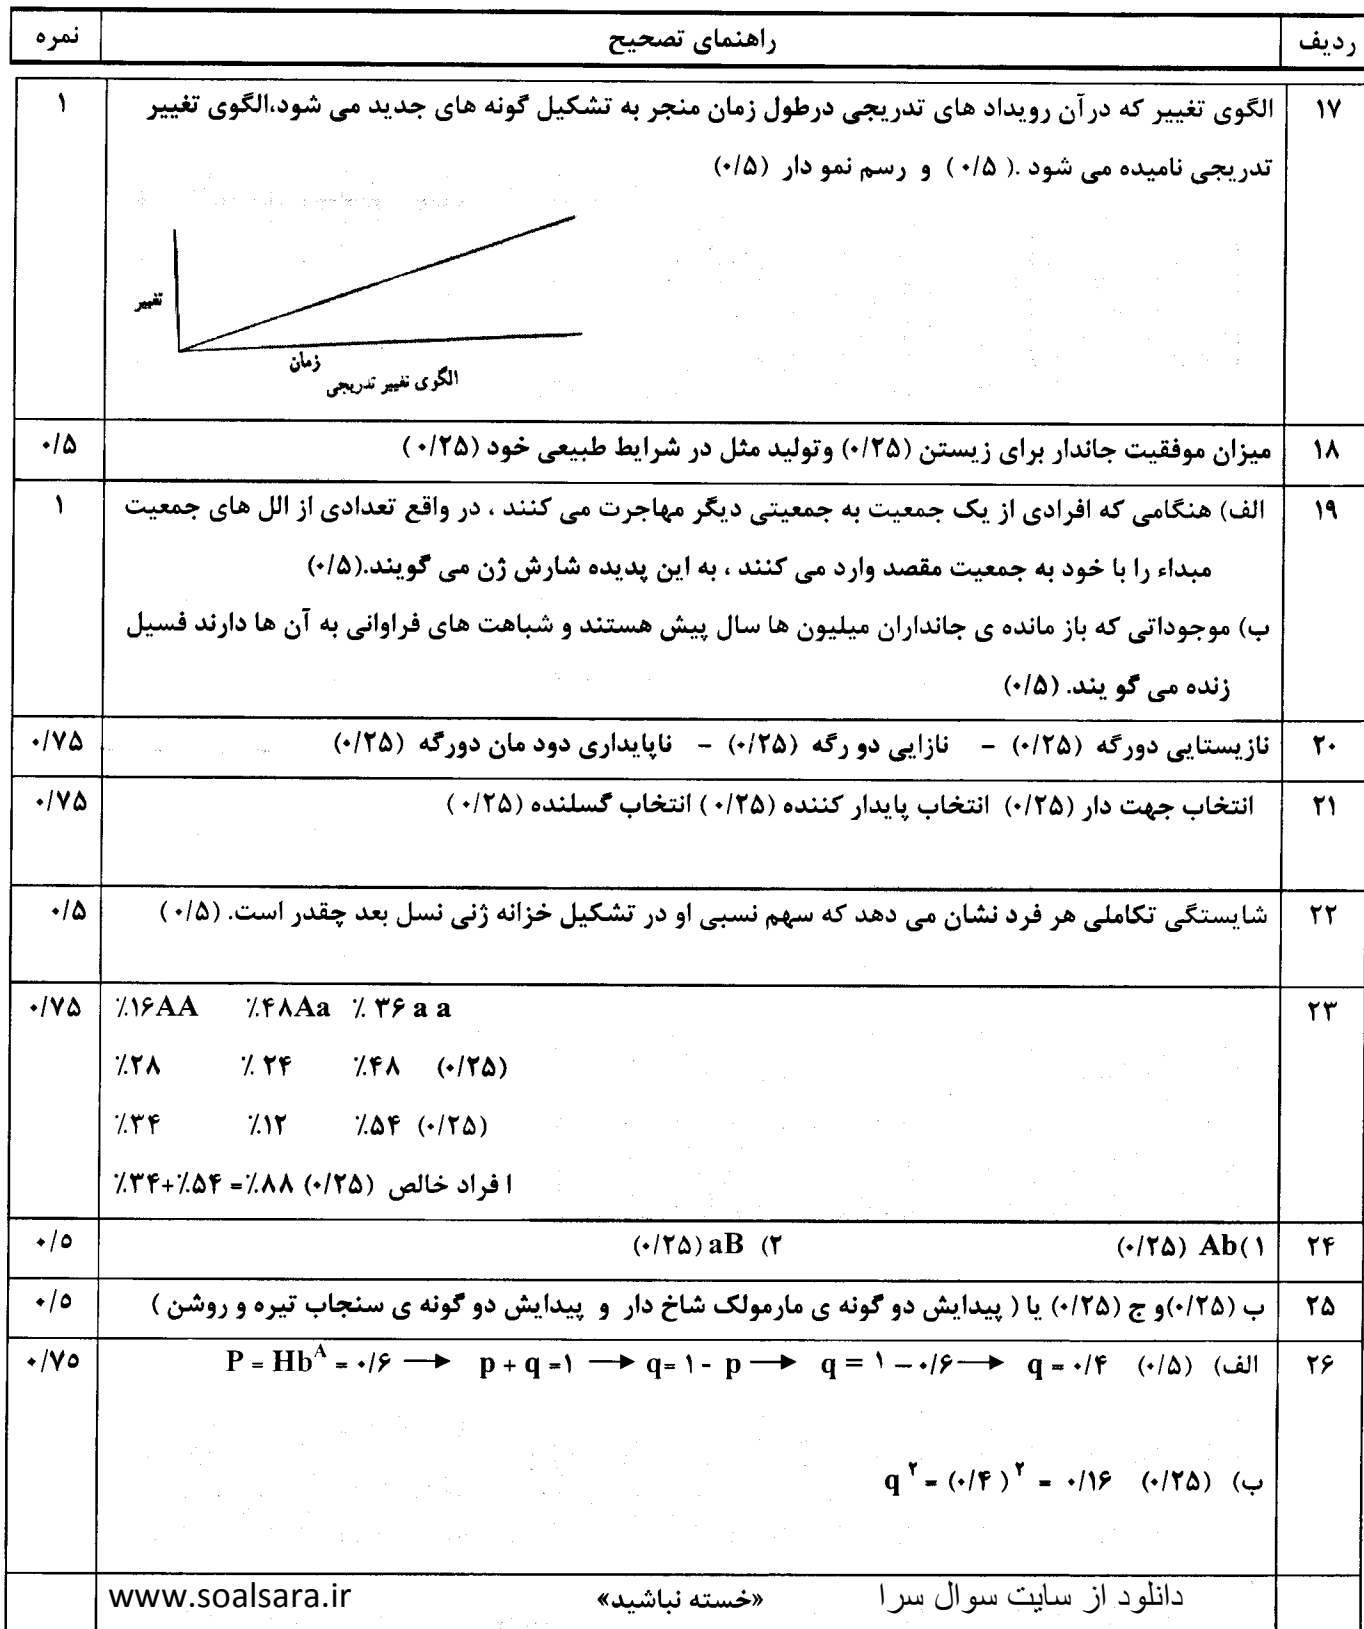 ردیف راهنمای تصحیح نمره
۱۷ الگوی تغییر که درآن رویداد های تدریجی درطول زمان منجر به تشکیل گونه های جدید می شود،الگوی تغییر ۱
تدریجی نامیده می شود .( ۰/۵ ) و رسم نمو دار (۰/۵)
تغییر
زمان
الگوی تغییر تدریجی
۱۸ میزان موفقیت جاندار برای زیستن (۰/۲۵) وتولید مثل در شرایط طبیعی خود (۰/۲۵ ) ۰/۵
۱۹ الف) هنگامی که افرادی از یک جمعیت به جمعیتی دیگر مهاجرت می کنند ، در واقع تعدادی از الل های جمعیت ۱
مبداء را با خود به جمعیت مقصد وارد می کنند ، به این پدیده شارش ژن می گویند.(۰/۵)
ب) موجوداتی که باز مانده ی جانداران میلیون ها سال پیش هستند و شباهت های فراوانی به آن ها دارند فسیل
زنده می گو یند. (۰/۵)
۲۰ نازیستایی دورگه (۰/۲۵) - نازایی دو رگه (۰/۲۵) - ناپایداری دود مان دورگه (۰/۲۵) ۰/۷۵
۲۱ انتخاب جهت دار (۰/۲۵) انتخاب پایدار کننده (۰/۲۵ ) انتخاب گسلنده (۰/۲۵ ) ۰/۷۵
۲۲ شایستگی تکاملی هر فرد نشان می دهد که سهم نسبی او در تشکیل خزانه ژنی نسل بعد چقدر است. (۰/۵ ) ۰/۵
۲۳ ٪۱۶AA ٪۴۸Aa ٪ ۳۶ a a ۰/۷۵
٪۲۸ ٪ ۲۴ ٪۴۸ (۰/۲۵)
٪۳۴ ٪۱۲ ٪۵۴ (۰/۲۵)
ا فراد خالص (۰/۲۵) ٪۸۸ = ٪۵۴+٪۳۴
۲۴ ۱) Ab (۰/۲۵) ۲) aB (۰/۲۵) ۰/۵
۲۵ ب (۰/۲۵)و ج (۰/۲۵) یا ( پیدایش دو گونه ی مارمولک شاخ دار و پیدایش دو گونه ی سنجاب تیره و روشن ) ۰/۵
۲۶ الف) (۰/۵) P = Hb^A = ۰/۶ → p + q =۱ → q= ۱ - p → q = ۱ – ۰/۶ → q = ۰/۴ ۰/۷۵
ب) (۰/۲۵) q ^۲ = (۰/۴ ) ^۲ = ۰/۱۶
دانلود از سایت سوال سرا «خسته نباشید» www.soalsara.ir